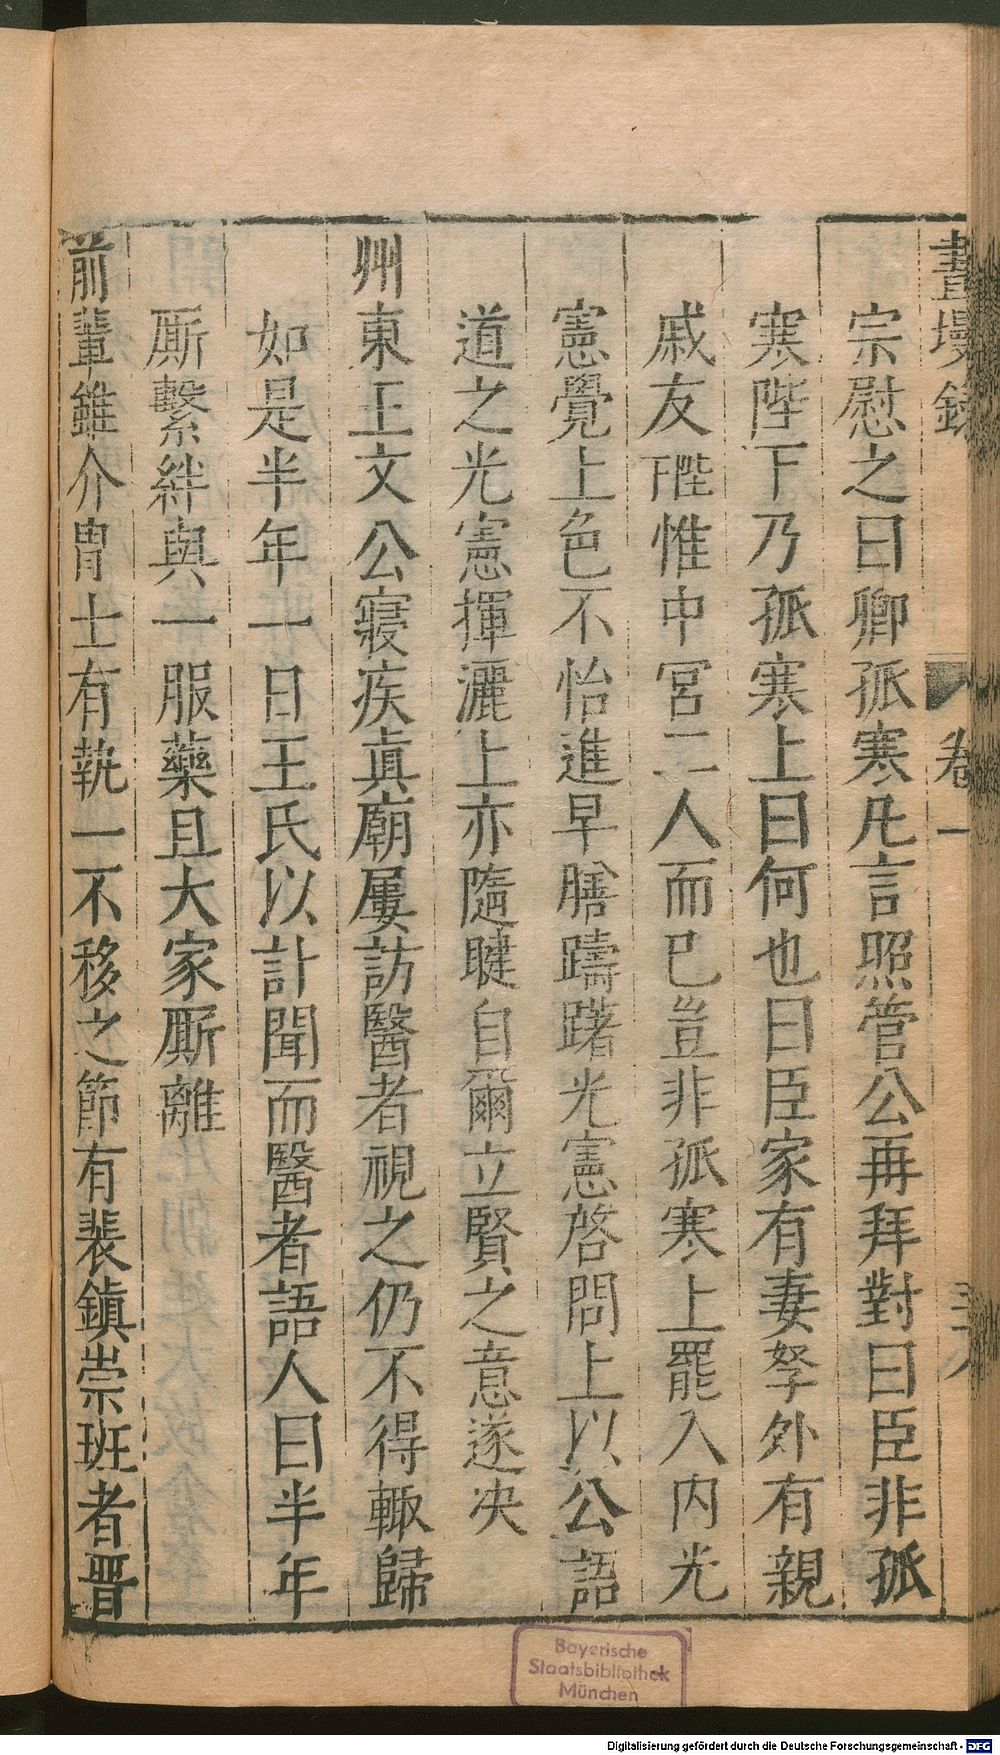 畫墁錄 卷一
宗慰之曰卿孤寒凡言照管公再拜對曰臣非孤
寒陛下乃孤寒上曰何也曰臣家有妻孥外有親
戚友陛下惟中宮二人而已豈非孤寒上罷入內光
憲覺上色不怡進早膳躊躇光憲啓問上以公語
道之光憲揮灑上亦隨睫自爾立賢之意遂决
州東王文公寢疾真廟屢訪醫者視之仍不得輙歸
如是半年一日王氏以訃聞而醫者語人曰半年
厮繫絆與一服藥且大家厮離
前輩雖介冑士有執一不移之節有裴鎮崇班者晋
Bayerische
Staatsbibliothek
München
Digitalisierung gefördert durch die Deutsche Forschungsgemeinschaft - DFG